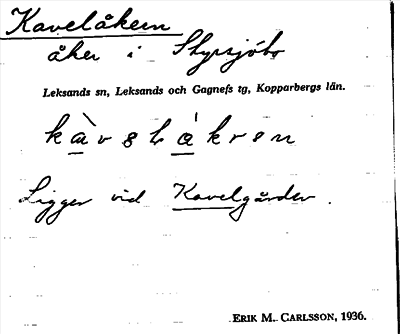 Kavelåkern
åker i Styrsjöbo
Leksands sn, Leksands och Gagnefs tg, Kopparbergs län.
Ligger vid Kavelgården.
ERIK M. CARLSSON, 1936.